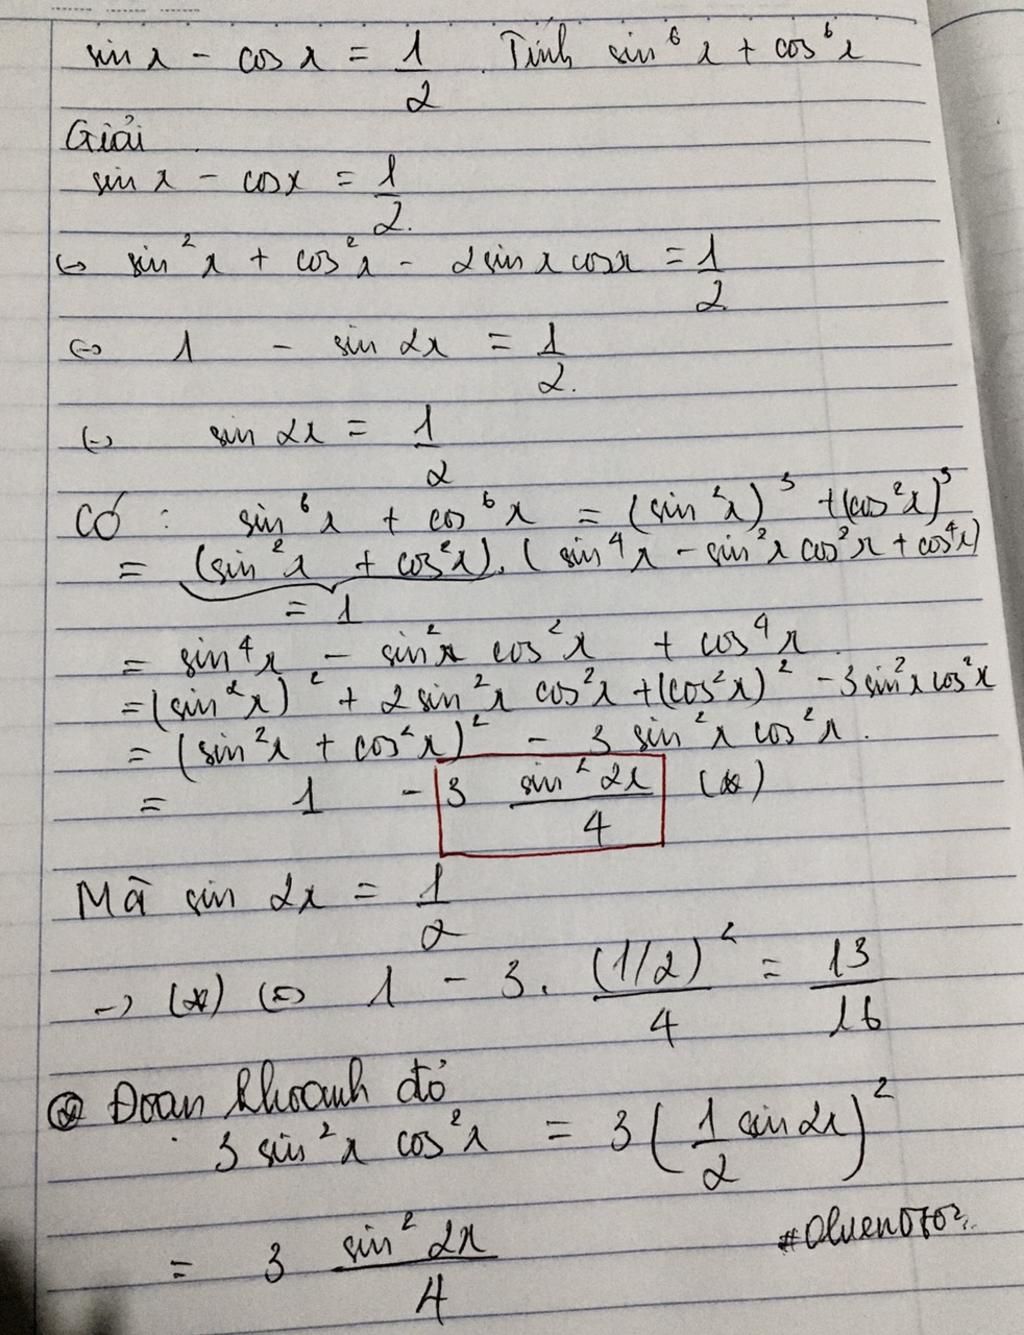 sin x - cos x = 1/2. Tính sin⁶x + cos⁶x
Giải
sin x - cos x = 1/2.
↔ sin²x + cos²x - 2sin x cos x = 1/2
↔ 1 - sin 2x = 1/2.
↔ sin 2x = 1/2
Có: sin⁶x + cos⁶x = (sin²x)³ + (cos²x)³
= (sin²x + cos²x).(sin⁴x - sin²x cos²x + cos⁴x)
= 1
= sin⁴x - sin²x cos²x + cos⁴x
= (sin²x)² + 2sin²x cos²x + (cos²x)² - 3sin²x cos²x
= (sin²x + cos²x)² - 3 sin²x cos²x.
= 1 - 3 sin²2x/4 (*)
Mà sin 2x = 1/2
→ (*) ↔ 1 - 3. (1/2)²/4 = 13/16
Đoạn khoanh đỏ
3 sin²x cos²x = 3(1/2 sin 2x)²
= 3 sin²2x/4